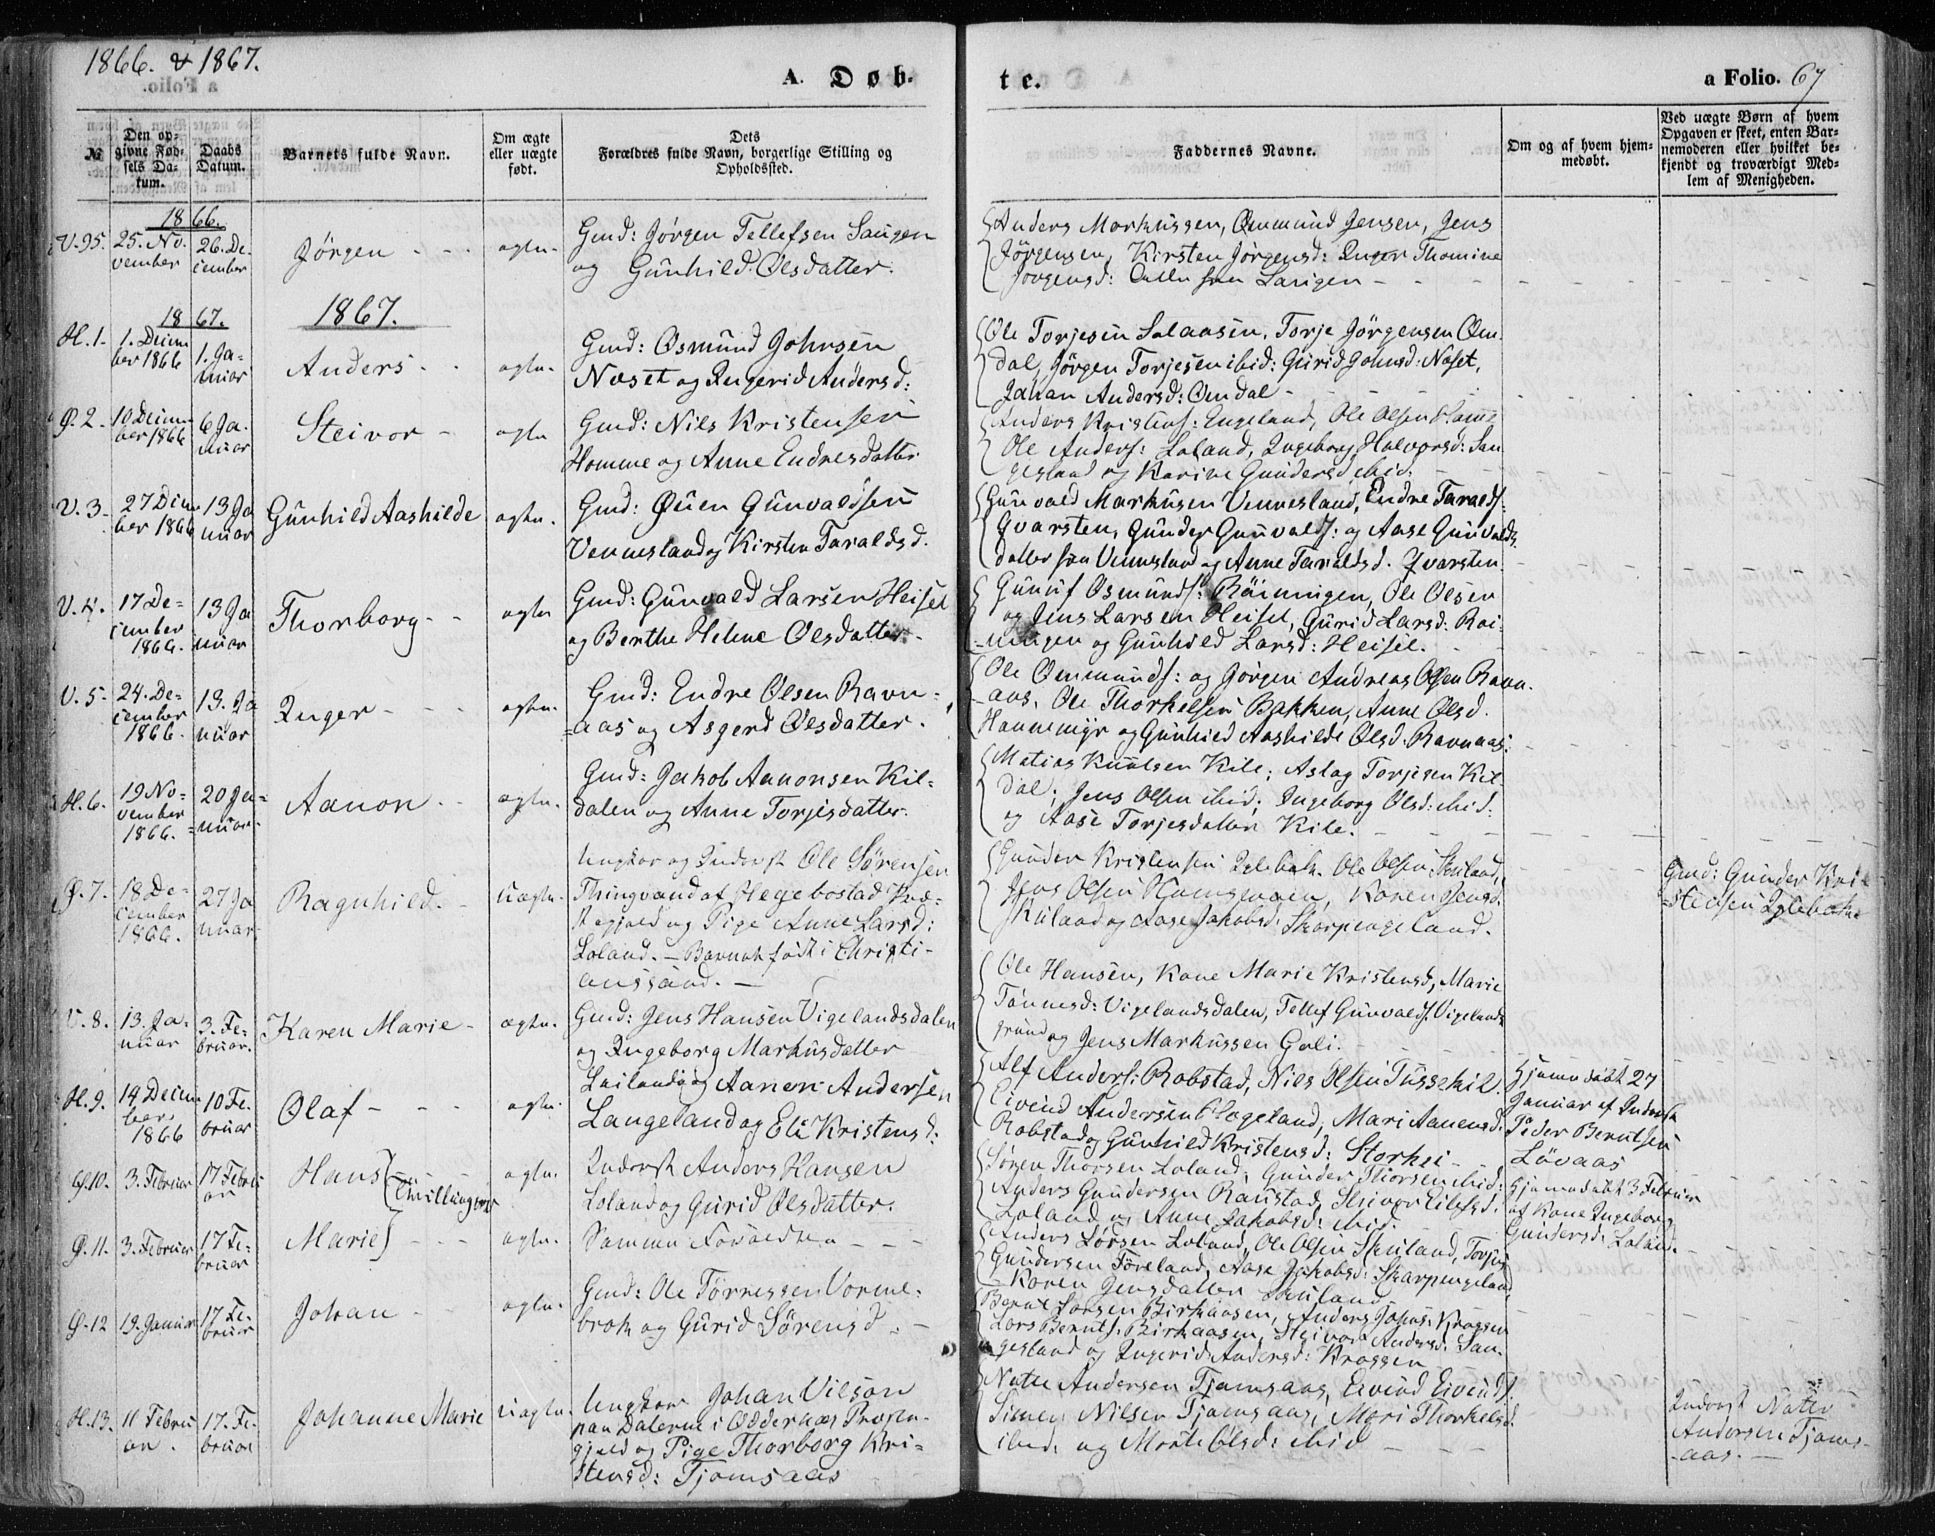 1866. & 1867.
A. Døb-
te.
a Folio. 67
№
Den op-
givne Fød-
sels Da-
tum.
Daabs
Datum.
Barnets fulde Navn.
Om ægte
eller uægte
født.
Dets
Forældres fulde Navn, borgerlige Stilling og
Opholdssted.
Faddernes Navne.
Om og af hvem hjem-
medøbt.
Ved uægte Børn af hvem
Opgaven er skeet, enten Bar-
nemoderen eller hvilket be-
kjendt og troværdigt Med-
lem af Menigheden.
1866.
V. 95. 25. No-
vember
26. De-
cember
Jørgen
ægte.
Gmd: Jørgen Tellefsen Saugen
og Gunhild Olsdatter.
Anders Markussen, Ommund Jensen, Jens
Jørgensen, Kirsten Jørgensd: Inger Thomine
Jørgensd:
1867.
1867.
H. 1. 1. Decem
ber 1866
1. Ja-
nuar
Anders
ægte.
Gmd: Osmund Johnsen
Næset og Ingerid Andersd:
Ole Torjesen Solaasen, Torje Jörgensen Om-
dal, Jørgen Torjesen ibid: Gurid Johnsd: Næset,
Johan Andersd: Omdal
Ø. 2 10 Decem
ber 1866
6 Ja-
nuar
Steivor
ægte
Gmd: Nils Kristensen
Homme og Anne Endresdatter.
Anders Kristens: Engeland, Ole Olsen
Ole Anders: Loland, Ingeborg Halvorsd: San-
gesland og Karine Gundersd ibid.
V. 3. 27 Decem
ber 1866
13 Ja
nuar
Gunhild Aashilde
ægte.
Gmd: Øuen Gunvaldsen
Vennesland og Kirsten Taraldsd.
Gunvald Markusen Vennesland, Endre Taralds:
Qvarsten, Gunder Gunvalds: og Aase Gunvalds
datter fra Vennesland og Anne Taraldsd. Qvarsten.
V. 4. 17 De-
cember
1866.
13 Ja
nuar
Thorborg
ægte
Gmd: Gunvald Larsen Heisel
og Berthe Helene Olsdatter.
Gunuf Osmunds: Röiningen, Ole Olsen
og Jens Larsen Heisel, Gurid Larsd: Röi-
ningen og Gunhild Larsd: Heisel.
V. 5 24. De-
cember
1866.
13. Ja
nuar
Inger
ægte.
Gmd: Endre Olsen Ravn-
aas og Asgerd Olsdatter.
Ole Ommunds: og Jørgen Andreas Olsen Ravn-
aas, Ole Thorkelsen Bakken, Anne Olsd.
Hannemyr og Gunhild Aashilde Olsd. Ravnaas:
H. 6. 19 No-
vember
1866.
20 Ja-
nuar
Aanon
ægte.
Gmd: Jakob Aanonsen Kil-
dalen og Anne Torjesdatter.
Matias Knutsen Kile, Aslag Torjesen Kil-
dal, Jens Olsen ibid; Ingeborg Olsd: ibid:
og Aase Torjesdatter Kile.
Ø. 7. 18 De-
cember
1866.
27 Ja
nuar
Ragnhild.
uægte.
Ungkar og Inderst Ole Sørensen
Thingvand af Hegebostad Præ-
stegjeld og Pige Anne Larsd:
Loland. - Barnet født i Christi-
anssand.
Gunder Kristensen Ole Olsen Skuland,
Jens Olsen Karen Jensd.
Skuland og Aase Jakobsd: Skarpengeland.
Gmd: Gunder Kri-
stensen
V. 8. 13. Ja-
nuar
3. Fe-
bruar.
Karen Marie
ægte.
Gmd: Jens Hansen Vigelandsdalen
og Ingeborg Markusdatter
Ole Hansen, Kone Marie Kristensd, Marie
Tönnesd: Vigelandsdalen, Tellef Gunvalds. Vigelands
grund og Jens Markussen Gali.
H. 9. 14 Decem
ber
1866
10 Fe-
bruar
Olaf
ægte.
og Aanen Andersen
Langeland og Eli Kristensd:
Alf Anders: Robstad, Nils Olsen Tusseskil
Eivind Andersen Hægeland, Mari Aanensd:
Robstad og Gunhild Kristensd: Storhei
Hjemmedøbt 27
Januar af Inderst
Peder Berntsen
Lövaas
Ø. 10. 3. Februar
17 Febru
ar
Hans
Tvillinger
ægte.
Inderst Anders Hansen
Loland og Gurid Olsdatter.
Sören Thorsen Loland, Gunder Thorsen ibid:
Anders Gundersen Raustad, Steivor Eilefsd:
Loland og Anne Jakobsd: ibid.
Hjemmedøbt 3 Februar
af Kone Ingeborg
Gundersd: Loland.
Ø. 11. 3. Februar
17 Fe-
bruar
Marie
ægte.
Samme Forældre
Anders Sörsen Loland, Ole Olsen Skuland, Torjus
Gundersen Föreland, Aase Jakobsd: Skarpengeland
Karen Jensdatter Skuland
Ø. 12 19. Januar
17 Fe-
bruar
Johan
ægte.
Gmd: Ole Tørressen Vorme-
brok og Gurid Sörensd.
Bernt Larsen Birkaasen, Anders Johns: Krossen
Lars Bernts. Birkaasen, Steivor Andersd. San-
gesland og Ingerid Andersd: Krossen
H. 13. 11 Febru
ar.
17. Fe-
bruar
Johanne Marie
uægte.
Ungkar Johan Vilson
paa Dalerne i Oddernæs Præste-
gjeld og Pige Thorborg Kri-
stensd: Tjomsaas
Nate Andersen Tjomsaas, Eivind Eivinds.
Simen Nilsen Tjomsaas, Mari Thorkelsd.
ibid: og Marte Olsd: ibid
Inderst Nate
Andersen Tjoms-
aas.